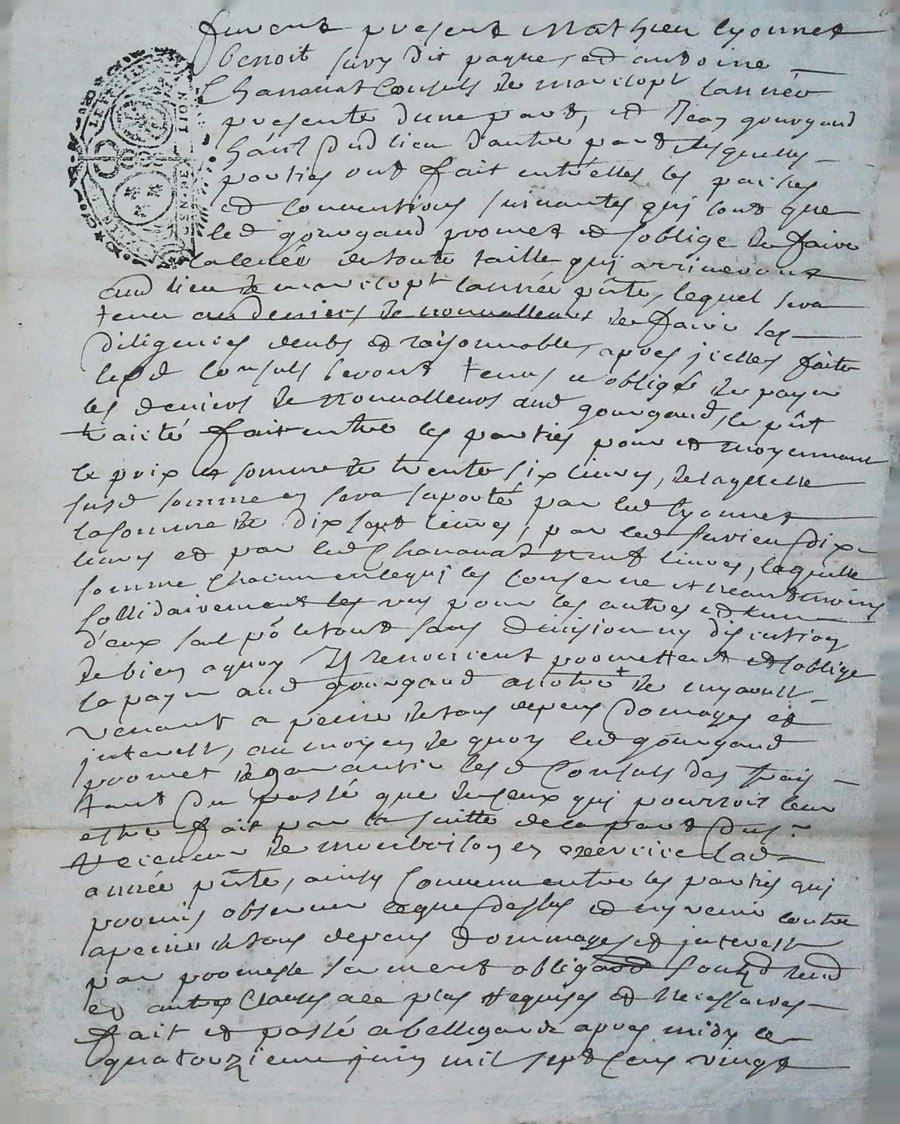 furent present Mathieu lyonnet
benoit fury dit pagne, et antoine
Chananat Consuls de marclopt lannée
presente d'une part, et Jean gourgaud
haut dud lieu d'autre part lesquelles
parties ont fait entr'elles les paches
et conventions suivantes qui sont que
led gourgaud promet et s'oblige de faire
la levée de toute taille qui arriveront
aud lieu de marclopt lannée pnte, lequel sera
tenu de faire les
diligences deubs et raisonnable, apres jcelles faites
lesd Consuls seront tenus et obligé de payer
les deniers de nonvalleurs aud gourgaud, le pnt
traicté fait entre les parties pour et moyennant
le prix et somme de trente six livres, de laquelle
susd somme en sera suporté par led lyonnet
la somme de dix sept livres, par led furieu dix
livres et par led Chananat neuf livres, laquelle
somme Chacun en le qui les Conserne et neantmoins
sollidairement les uns pour les autres et l'un
d'eux seul pr le tout sans division ny discution
de bien a quoy ils renoncent promettent et s'oblige
la payer aud gourgaud a notre de my aoust
venant a peine de tous depens domages et
jnterest, au moyen de quoy led gourgaud
promet de garantir lesd Consuls des frais
tant du passé que de ceux qui pourroit leur
estre fait par la suitte de la part du sr
Receveur de montbrison en exercice lad
année pnte, ainsy Convenu entre les parties qui
promis observer ce que dessus et ny venir contre
a peine de tous depens dommages et jnterest
par promesse serment obligaon soubz rend
et autres Clauses a ce plus requises et necessaires
fait et passé a bellegarde apres midy le
quatorzieme juin mil sept Cens vingt